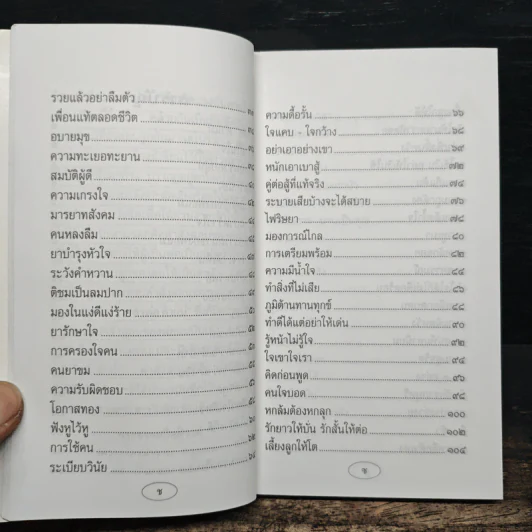 รวยแล้วอย่าลืมตัว
เพื่อนแท้ตลอดชีวิต
อบายมุข
ความทะเยอทะยาน
สมบัติผู้ดี
ความเกรงใจ
มารยาทสังคม
คนหลงลืม
ยาบำรุงหัวใจ
ระวังคำหวาน
ติชมเป็นลมปาก
มองในแง่ดีแง่ร้าย
ยารักษาใจ
การครองใจคน
คนยาขม
ความรับผิดชอบ
โอกาสทอง
ฟังหูไว้หู
การใช้คน
ระเบียบวินัย
ช
ความดื้อรั้น ๖๖
ใจแคบ - ใจกว้าง ๖๘
อย่าเอาอย่างเขา ๖๙
หนักเอาเบาสู้ ๗๒
คู่ต่อสู้ที่แท้จริง ๗๔
ระบายเสียบ้างจะได้สบาย ๗๖
ไฟริษยา ๗๘
มองการณ์ไกล ๘๐
การเตรียมพร้อม ๘๒
ความมีน้ำใจ ๘๔
ทำสิ่งที่ไม่เสีย ๘๖
ภูมิต้านทานทุกข์ ๘๘
ทำดีได้แต่อย่าให้เด่น ๙๐
รู้หน้าไม่รู้ใจ ๙๒
ใจเขาใจเรา ๙๔
คิดก่อนพูด ๙๖
คนใจบอด ๙๘
หกล้มต้องหกลุก ๑๐๐
รักยาวให้บั่น รักสั้นให้ต่อ ๑๐๒
เลี้ยงลูกให้โต ๑๐๔
ซ